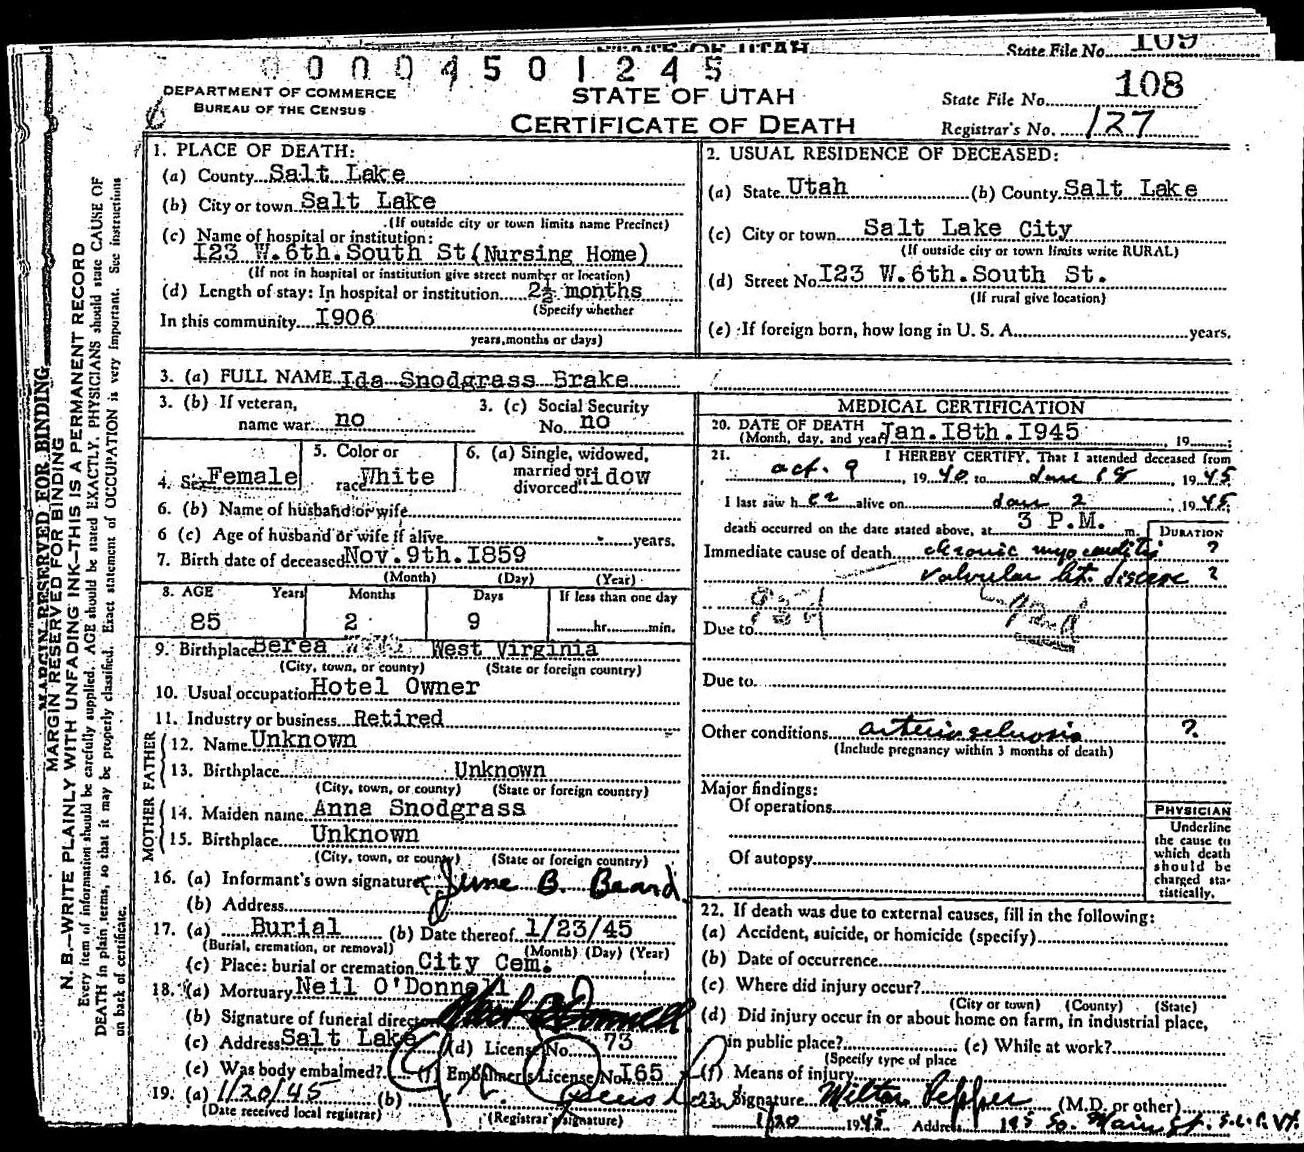 STATE OF UTAH
State File No. 109
00004501245
DEPARTMENT OF COMMERCE
BUREAU OF THE CENSUS
6
STATE OF UTAH
CERTIFICATE OF DEATH
State File No. 108
Registrar's No. 127
MARGIN RESERVED FOR BINDING
MARGIN RESERVED FOR BINDING
N. B.—WRITE PLAINLY WITH UNFADING INK—THIS IS A PERMANENT RECORD
Every item of information should be carefully supplied. AGE should be stated EXACTLY. PHYSICIANS should state CAUSE OF
DEATH in plain terms, so that it may be properly classified. Exact statement of OCCUPATION is very important. See instructions
on back of certificate.
1. PLACE OF DEATH:
(a) County Salt Lake
(b) City or town Salt Lake
(If outside city or town limits name Precinct)
(c) Name of hospital or institution:
I23 W.6th.South St(Nursing Home)
(If not in hospital or institution give street number or location)
(d) Length of stay: In hospital or institution 2½ months
(Specify whether
In this community I906
years, months or days)
2. USUAL RESIDENCE OF DECEASED:
(a) State Utah (b) County Salt Lake
(c) City or town Salt Lake City
(If outside city or town limits write RURAL)
(d) Street No I23 W.6th.South St.
(If rural give location)
(e) If foreign born, how long in U. S. A. years.
3. (a) FULL NAME Ida Snodgrass Brake
3. (b) If veteran, 3. (c) Social Security
name war no No. no
4. Sex Female 5. Color or race White 6. (a) Single, widowed, married or divorced Widow
6. (b) Name of husband or wife
6 (c) Age of husband or wife if alive years.
7. Birth date of deceased Nov. 9th. I859
(Month) (Day) (Year)
8. AGE Years Months Days If less than one day
85 2 9 hr. min.
9. Birthplace Berea West Virginia
(City, town, or county) (State or foreign country)
10. Usual occupation Hotel Owner
11. Industry or business Retired
FATHER
12. Name Unknown
13. Birthplace Unknown
(City, town, or county) (State or foreign country)
MOTHER
14. Maiden name Anna Snodgrass
15. Birthplace Unknown
(City, town, or county) (State or foreign country)
16. (a) Informant's own signature June B. Beard
(b) Address
17. (a) Burial (b) Date thereof 1/23/45
(Burial, cremation, or removal) (Month) (Day) (Year)
(c) Place: burial or cremation City Cem.
18. (a) Mortuary Neil O'Donnell
(b) Signature of funeral director
(c) Address Salt Lake (d) License No. 73
(e) Was body embalmed? (f) Embalmer's License No. I65
19. (a) 1/20/45 (b)
(Date received local registrar) (Registrar's signature)
MEDICAL CERTIFICATION
20. DATE OF DEATH
(Month, day, and year) Jan.I8th.I945 19
21. I HEREBY CERTIFY, That I attended deceased from
Oct. 9 1940 to Jan 18, 1945
I last saw her alive on Jan 2, 1945
death occurred on the date stated above, at 3 P.M. m.
DURATION
Immediate cause of death chronic myocarditis ?
valvular ht. disease ?
Due to
Due to
Other conditions arteriosclerosis ?
(Include pregnancy within 3 months of death)
Major findings:
Of operations
Of autopsy
PHYSICIAN
Underline
the cause to
which death
should be
charged sta-
tistically.
22. If death was due to external causes, fill in the following:
(a) Accident, suicide, or homicide (specify)
(b) Date of occurrence
(c) Where did injury occur?
(City or town) (County) (State)
(d) Did injury occur in or about home on farm, in industrial place,
in public place? (e) While at work?
(Specify type of place
(f) Means of injury
23. Signature Milton Pepper (M.D. or other)
1/20 1945 Address 195 So. Main St. S.L.C. Ut.